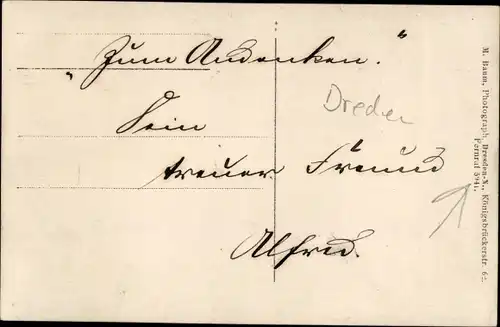 "Zum Andenken."
Dein
treuer Freund
Alfred.
Dreden
M. Baum, Photograph, Dresden-N., Königsbrückerstr. 62.
Fernruf 5941.